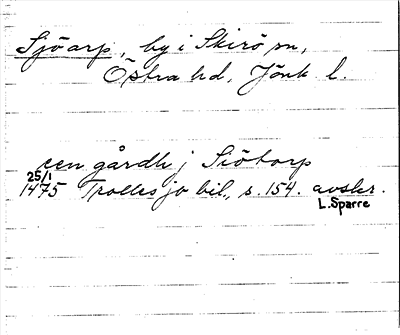 Sjöarp, by i Skirö sn,
Östra hd, Jönk l.
een gårdh j Siötorp
25/1
1475 Trolles jo bil., s. 154. avskr.
L. Sparre